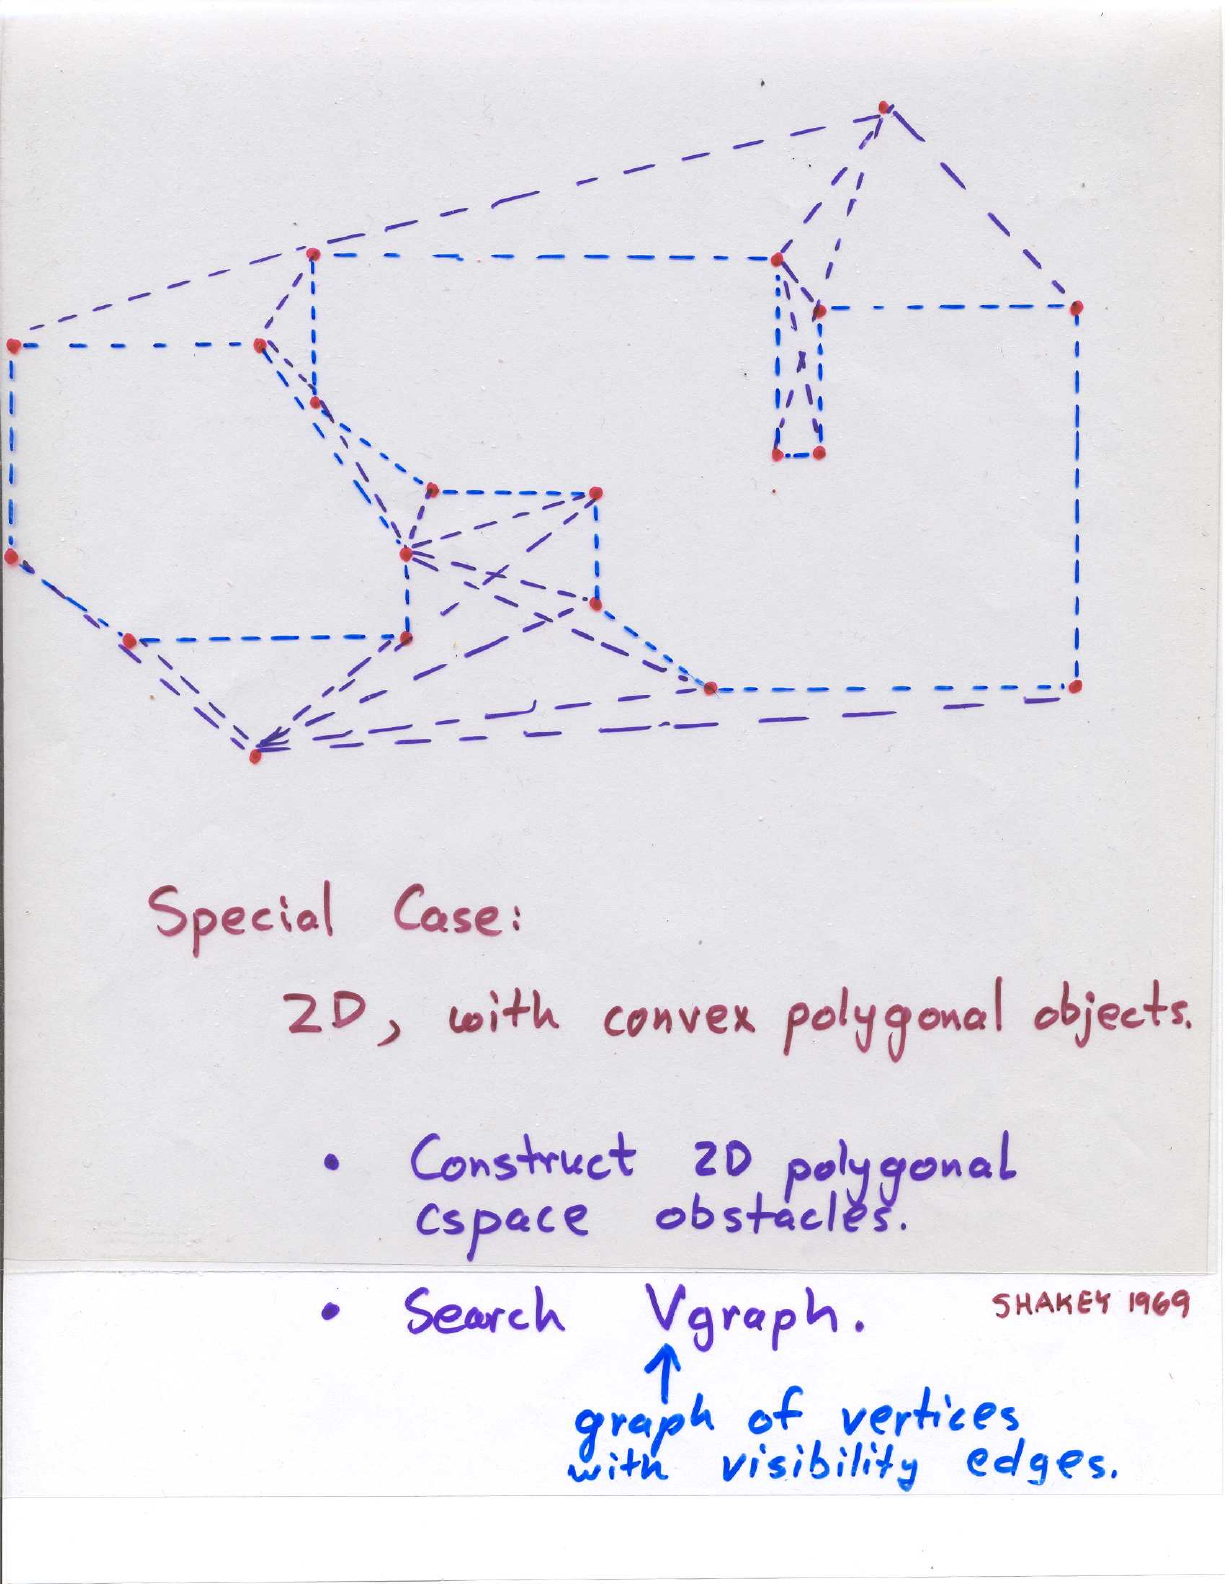 Special Case:
2D, with convex polygonal objects.
• Construct 2D polygonal
cspace obstacles.
• Search Vgraph.
SHAKEY 1969
graph of vertices
with visibility edges.